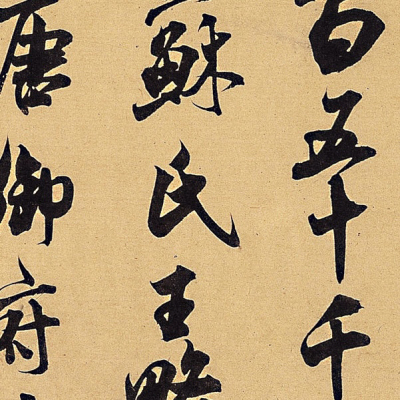 百五十千
蘇氏王略
唐御府